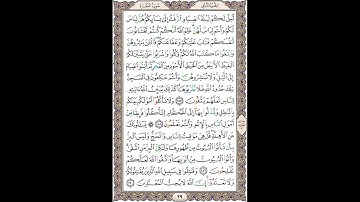 أُحِلَّ لَكُمْ لَيْلَةَ الصِّيَامِ الرَّفَثُ إِلَىٰ نِسَائِكُمْ هُنَّ لِبَاسٌ
لَّكُمْ وَأَنتُمْ لِبَاسٌ لَّهُنَّ عَلِمَ اللَّهُ أَنَّكُمْ كُنتُمْ تَخْتَانُونَ
أَنفُسَكُمْ فَتَابَ عَلَيْكُمْ وَعَفَا عَنكُمْ فَالْآنَ بَاشِرُوهُنَّ
وَابْتَغُوا مَا كَتَبَ اللَّهُ لَكُمْ وَكُلُوا وَاشْرَبُوا حَتَّىٰ يَتَبَيَّنَ لَكُمُ
الْخَيْطُ الْأَبْيَضُ مِنَ الْخَيْطِ الْأَسْوَدِ مِنَ الْفَجْرِ ثُمَّ أَتِمُّوا الصِّيَامَ
إِلَى اللَّيْلِ وَلَا تُبَاشِرُوهُنَّ وَأَنتُمْ عَاكِفُونَ فِي الْمَسَاجِدِ
تِلْكَ حُدُودُ اللَّهِ فَلَا تَقْرَبُوهَا كَذَٰلِكَ يُبَيِّنُ اللَّهُ آيَاتِهِ
لِلنَّاسِ لَعَلَّهُمْ يَتَّقُونَ ١٨٧ وَلَا تَأْكُلُوا أَمْوَالَكُم بَيْنَكُم
بِالْبَاطِلِ وَتُدْلُوا بِهَا إِلَى الْحُكَّامِ لِتَأْكُلُوا فَرِيقًا مِّنْ
أَمْوَالِ النَّاسِ بِالْإِثْمِ وَأَنتُمْ تَعْلَمُونَ ١٨٨ يَسْأَلُونَكَ
عَنِ الْأَهِلَّةِ قُلْ هِيَ مَوَاقِيتُ لِلنَّاسِ وَالْحَجِّ وَلَيْسَ الْبِرُّ
بِأَن تَأْتُوا الْبُيُوتَ مِن ظُهُورِهَا وَلَٰكِنَّ الْبِرَّ مَنِ اتَّقَىٰ
وَأْتُوا الْبُيُوتَ مِنْ أَبْوَابِهَا وَاتَّقُوا اللَّهَ لَعَلَّكُمْ
تُفْلِحُونَ ١٨٩ وَقَاتِلُوا فِي سَبِيلِ اللَّهِ الَّذِينَ يُقَاتِلُونَكُمْ
وَلَا تَعْتَدُوا إِنَّ اللَّهَ لَا يُحِبُّ الْمُعْتَدِينَ ١٩٠
٢٩